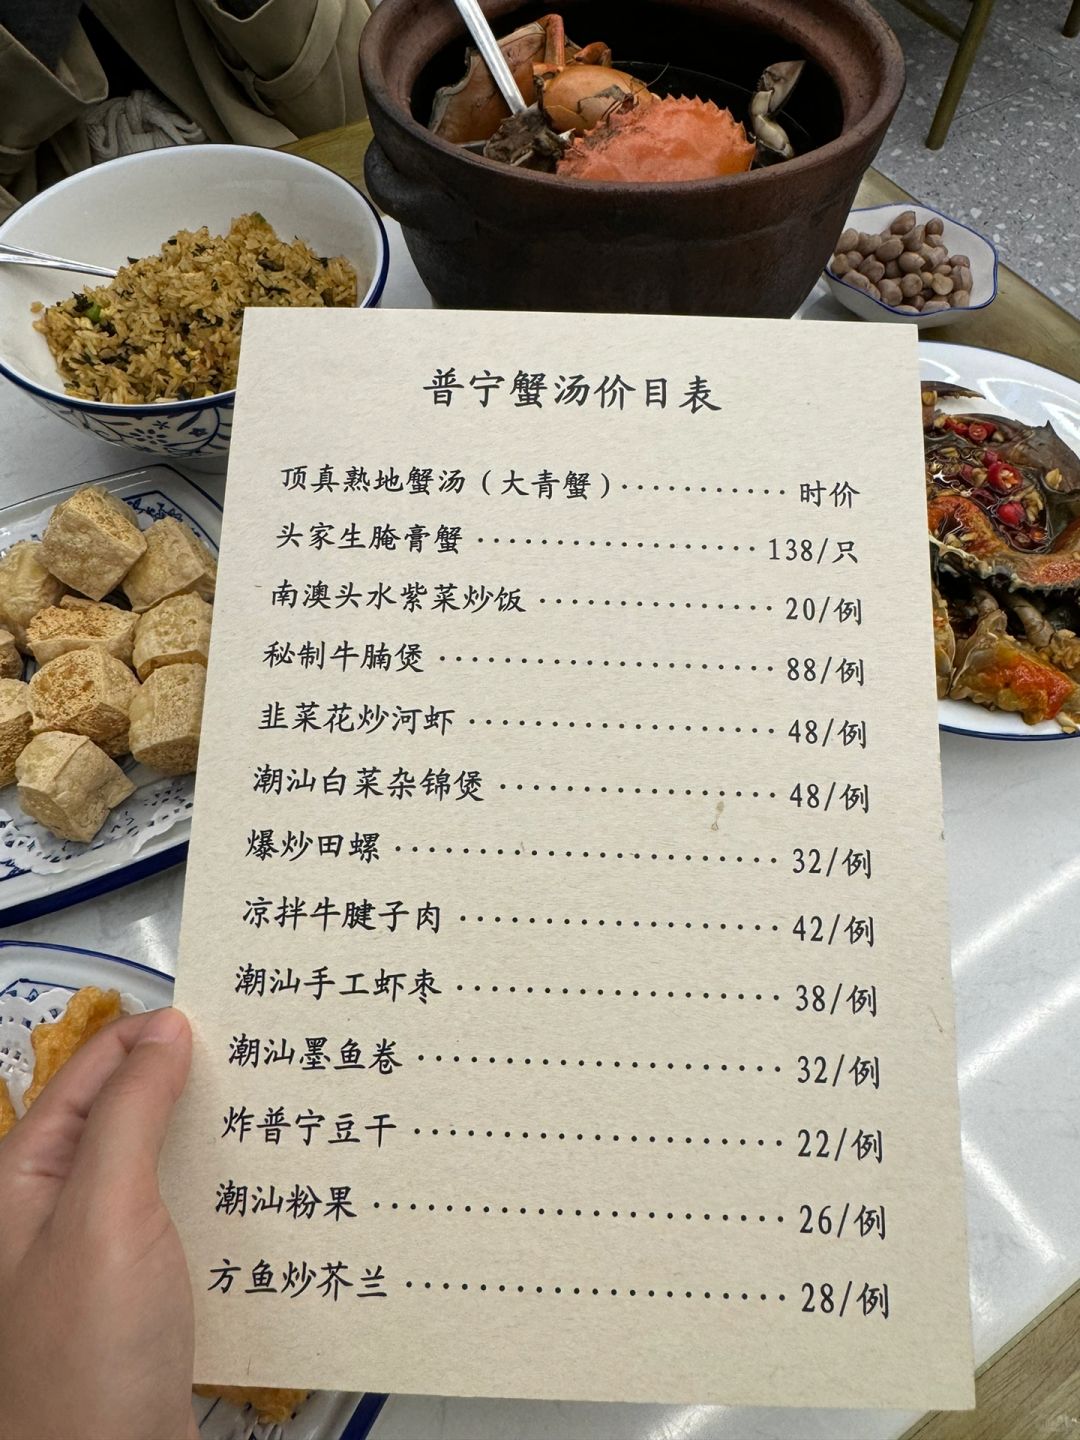 普宁蟹汤价目表
顶真熟地蟹汤（大青蟹）··········· 时价
头家生腌膏蟹 ·················· 138/只
南澳头水紫菜炒饭 ··············· 20/例
秘制牛腩煲 ····················· 88/例
韭菜花炒河虾 ··················· 48/例
潮汕白菜杂锦煲 ················· 48/例
爆炒田螺 ······················· 32/例
凉拌牛腱子肉 ··················· 42/例
潮汕手工虾枣 ··················· 38/例
潮汕墨鱼卷 ····················· 32/例
炸普宁豆干 ····················· 22/例
潮汕粉果 ······················· 26/例
方鱼炒芥兰 ····················· 28/例